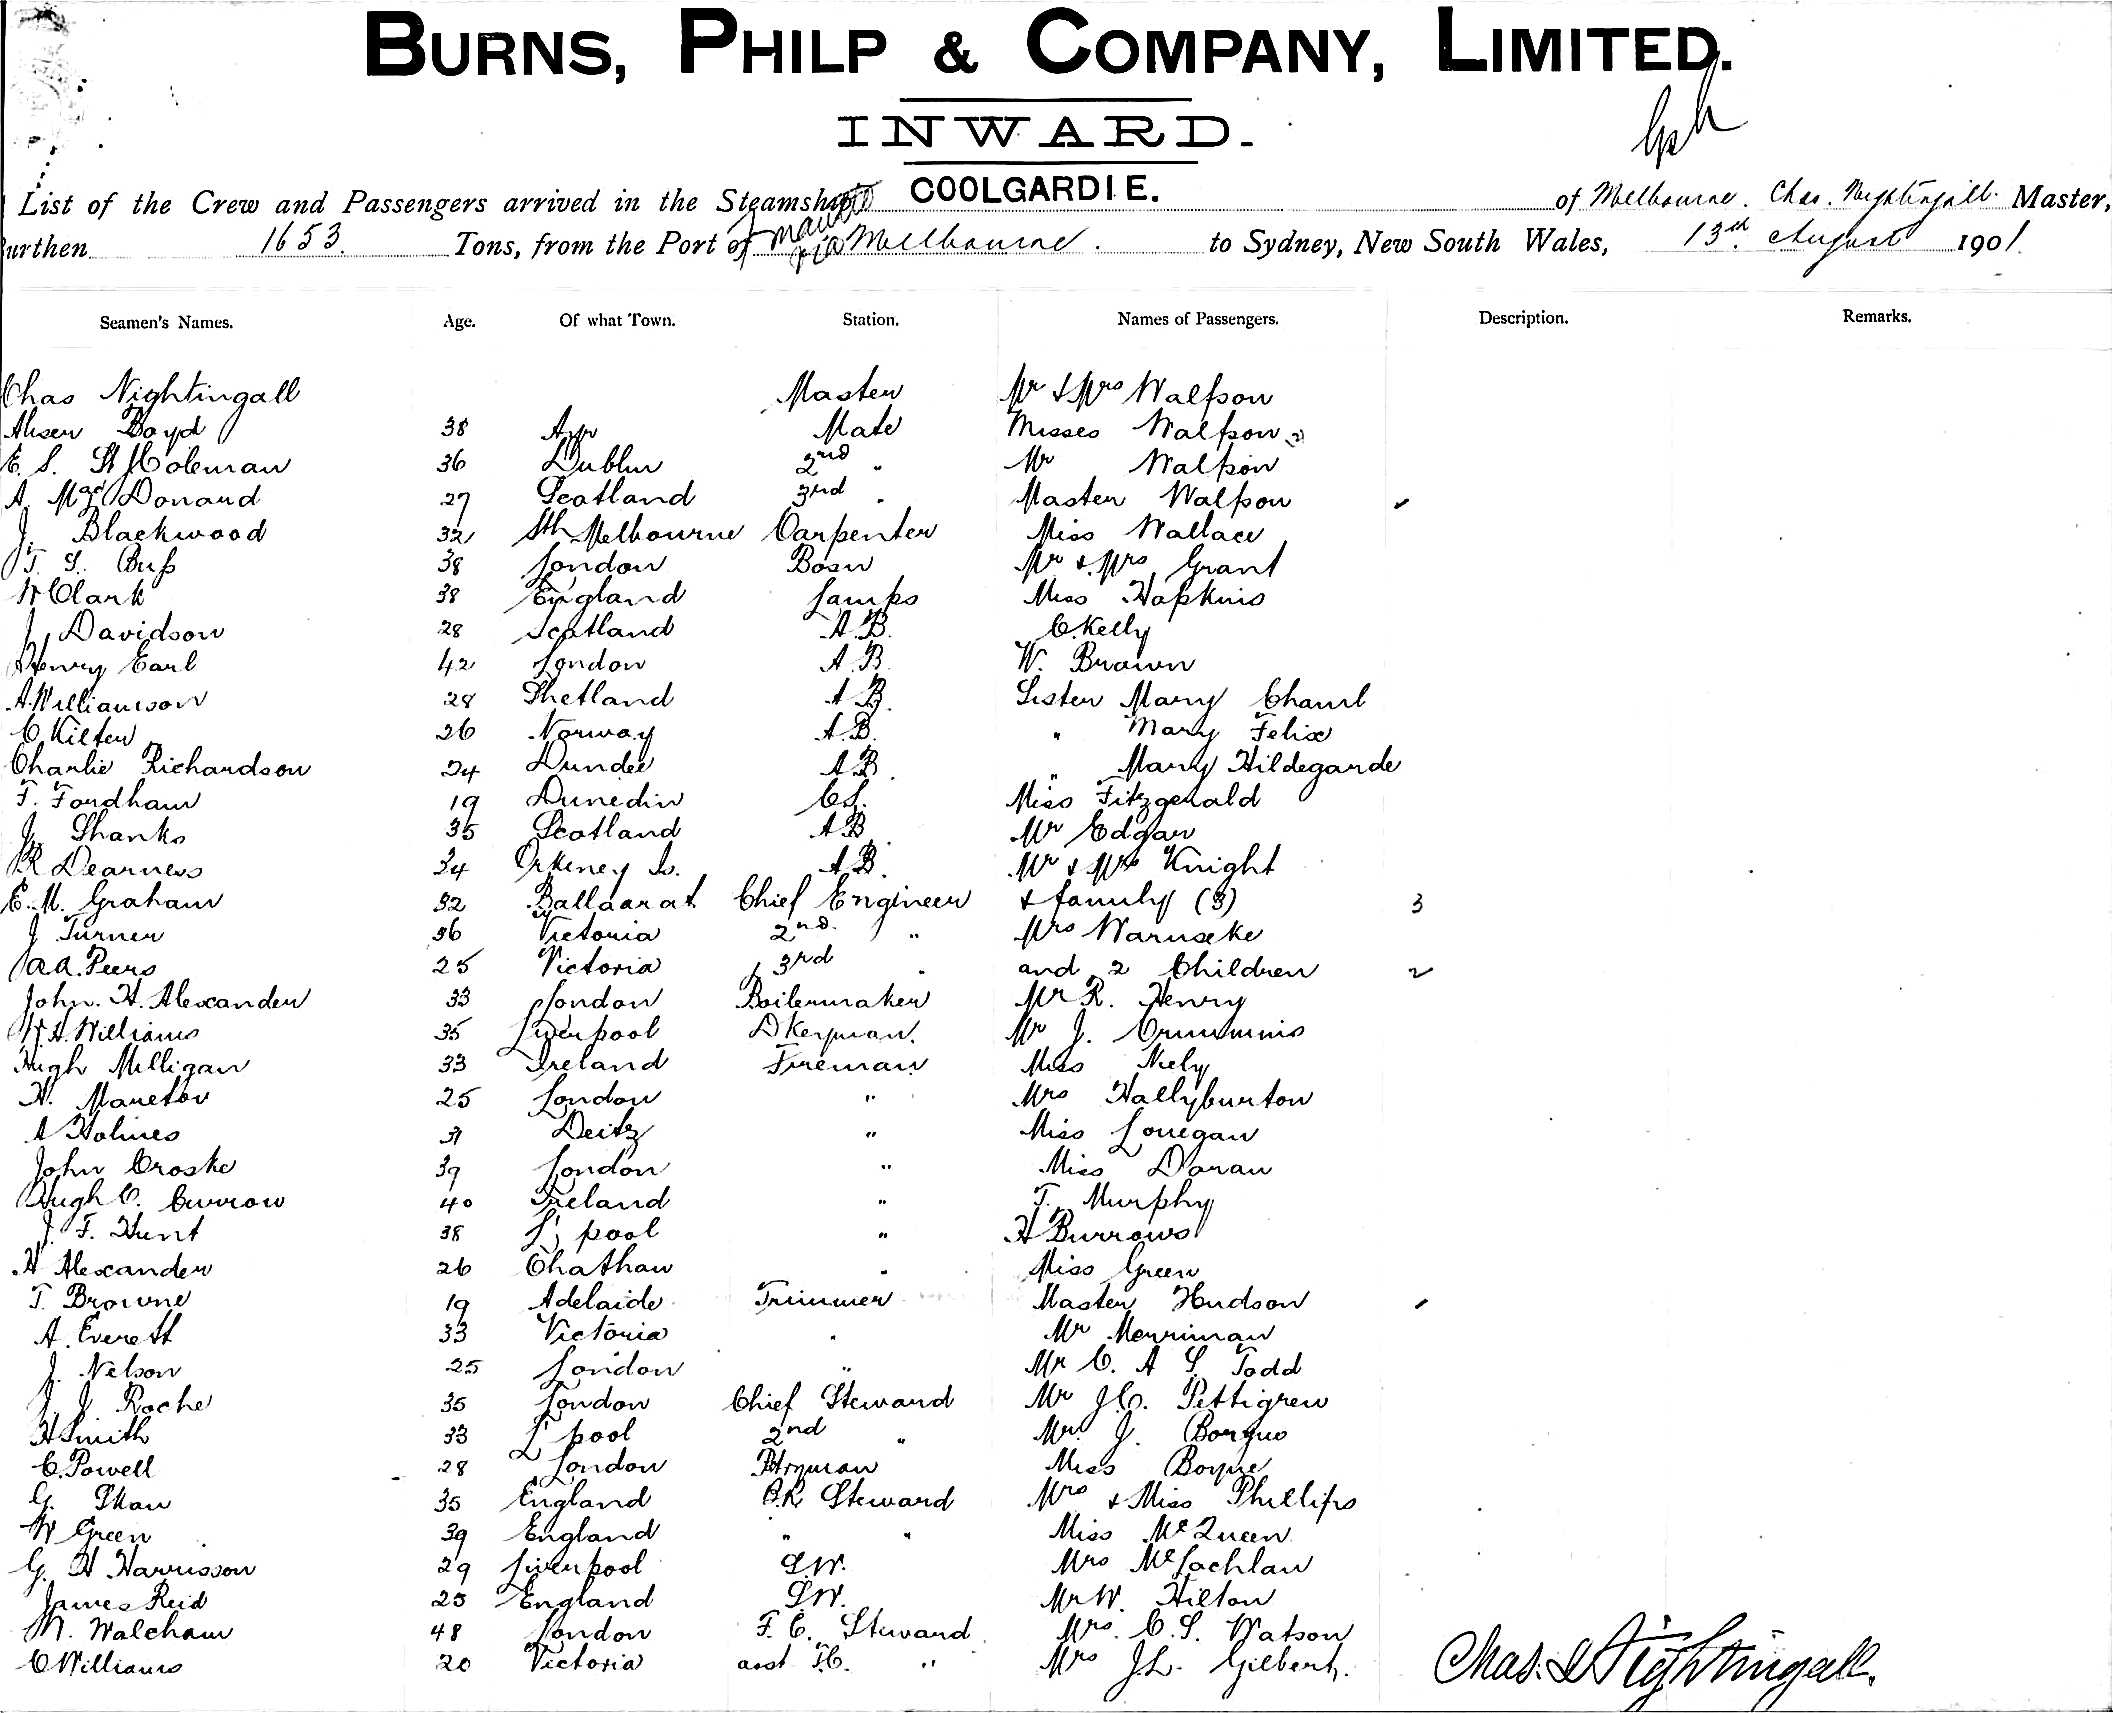 BURNS, PHILP & COMPANY, LIMITED.
INWARD.
List of the Crew and Passengers arrived in the Steamship COOLGARDIE. of Melbourne. Chas. Nightingall Master,
Burthen 1653. Tons, from the Port of via Melbourne. to Sydney, New South Wales, 13th August 1901.
Seamen's Names. Age. Of what Town. Station. Names of Passengers. Description. Remarks.
Chas Nightingall Master Mr & Mrs Walfson
Boyd 38 Ayr Mate Misses Walfson (2)
E. S. St J Coleman 36 Dublin 2nd " Mr Walfson
A. MacDonard 27 Scotland 3rd " Master Walfson
J. Blackwood 32 Sth Melbourne Carpenter Miss Wallace
T. S. Buss 38 London Bosn Mr & Mrs Grant
W Clark 38 England Lamps Miss Hopkins
J. Davidson 28 Scotland A.B. C. Kelly
Henry Earl 42 London A.B. W. Brown
A. Williamson 28 Shetland A.B. Sister Mary
C. Kilten 26 Norway A.B. " Mary Felix
Charlie Richardson 24 Dundee A.B. " Mary Hildegarde
F. Fordham 19 Dunedin O.S. Miss Fitzgerald
J. Shanks 35 Scotland A.B Mr Edgar
R Dearness 34 Orkeney Is. A.B. Mr & Mrs Knight
E. M. Graham 32 Ballaarat Chief Engineer & family (3) 3
J Turner 36 Victoria 2nd. " Mrs Warnseke
A.A. Peers 25 Victoria 3rd " and 2 Children 2
John. H. Alexander 33 London Boilermaker Mr R. Henry
W.H. Williams 35 Liverpool Dkeyman. Mr J. Crummins
Hugh Milligan 33 Ireland Fireman Miss Niely
H. Maneton 25 London " Mrs Hallyburton
A Holmes 31 Deitz " Miss Lonegan
John Croske 39 London " Miss Doran
Hugh C. Currow 40 Ireland " T. Murphy
J. F. Hunt 38 L'pool " H Burrows
H Alexander 26 Chatham " Miss Green
T. Browne 19 Adelaide Trimmer Master Hudson
A. Everett 33 Victoria " Mr Merriman
J. Nelson 25 London " Mr C. A S. Todd
J. J Roche 35 London Chief Steward Mr J.C. Pettigrew
H Smith 33 L'pool 2nd " Mr. J.
C. Powell 28 London Ptryman Miss Boyne
G. 35 England B.R Steward Mrs & Miss Phillips
W Green 39 England " " Miss McQueen
G. H Harrisson 29 Liverpool S.W. Mrs McLachlan
James Reid 25 England S.W. Mr W. Hilton
M. Walcham 48 London F. C. Steward Mrs. C. S. Watson
C Williams 20 Victoria asst F.C. " Mrs J L. Gilbert.
Chas. Nightingall.